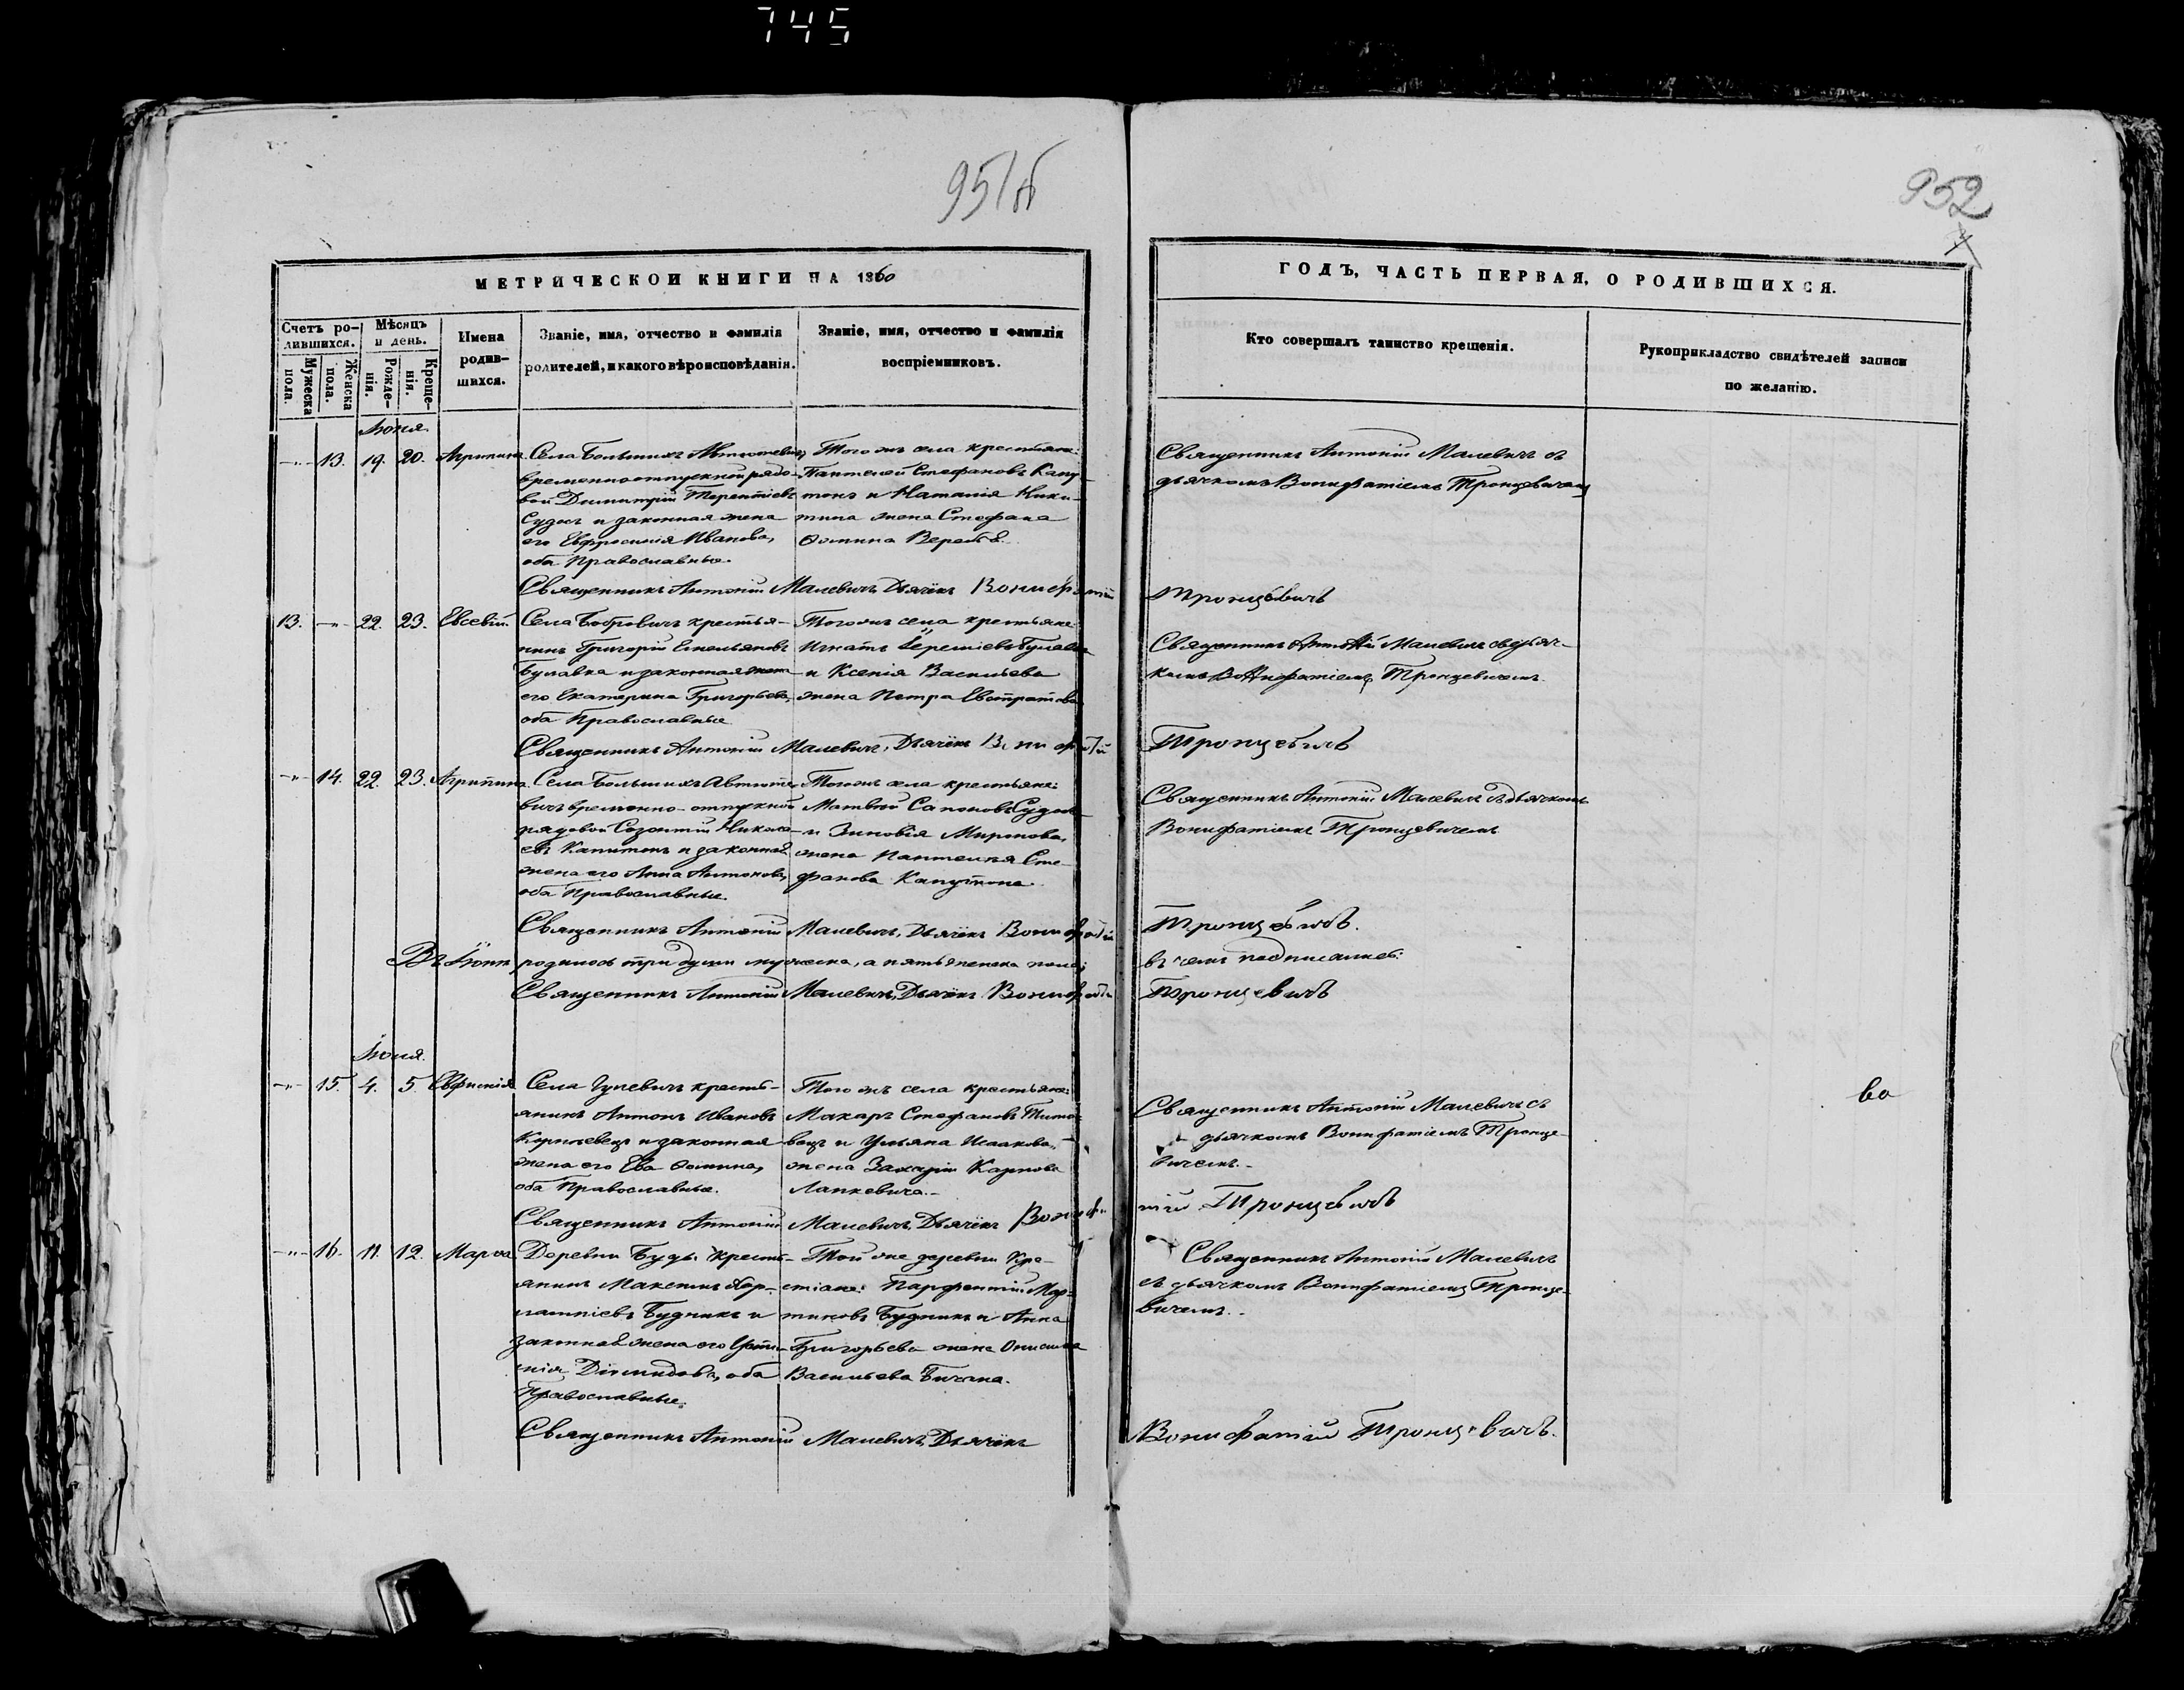 745
951б
952
МЕТРИЧЕСКОЙ КНИГИ НА 1860
ГОДЪ, ЧАСТЬ ПЕРВАЯ, О РОДИВШИХСЯ.
Счетъ ро-
дившихся.
Мужеска
пола.
Женска
пола.
Мѣсяцъ
и день.
Рожде-
нія.
Креще-
нія.
Имена
родив-
шихся.
Званіе, имя, отчество и фамилія
родителей, и какого вѣроисповѣданія.
Званіе, имя, отчество и фамилія
воспріемниковъ.
Кто совершалъ таинство крещенія.
Рукоприкладство свидѣтелей записи
по желанію.
13. 19. 20. Агрипина
Села Большихъ
временноотпускной рядо-
вой Димитрій Терентіевъ
Судасъ и законная жена
его Евфросинія Иванова,
оба Православные.
Того жъ села крестьяне:
Пантелей Стефановъ Капу-
тонъ и Наталія Ники-
тина жена Стефана
Ѳомина
Священникъ Антоній Малевичъ съ
дьячкомъ Вонифатіемъ Тронцевичемъ
Священникъ Антоній Малевичъ, Дьячекъ Вонифатій Тронцевичъ
13. 22. 23. Евсевій
Села Бобровичъ крестья-
нинъ Григорій Емельяновъ
Булавка и законная жена
его Екатерина Григорьева,
оба Православные
Того жъ села крестьяне:
Игнатъ
и Ксенія Васильева
жена Петра Евстратова
Священникъ Антоній Малевичъ съ дьяч-
комъ Вонифатіемъ Тронцевичемъ.
Священникъ Антоній Малевичъ, Дьячекъ Вонифатій Тронцевичъ
14. 22. 23. Агрипина
Села Большихъ Автюте-
вичъ временно-отпускной
рядовой Созонтій Никола-
евъ Капитонъ и законная
жена его Анна Антонова,
оба Православные.
Того жъ села крестьяне:
Матвій
и Зиновія Миронова,
жена Пантелея Сте-
фанова Капутона.
Священникъ Антоній Малевичъ съ дьячкомъ
Вонифатіемъ Тронцевичемъ
Священникъ Антоній Малевичъ, Дьячекъ Вонифатій Тронцевичъ.
родилось три души мужеска, а пять женска пола;
въ чемъ подписались:
Священникъ Антоній Малевичъ, Дьячекъ Вонифатій Тронцевичъ
15. 4. 5.
Села крестья-
янинъ Антонъ Ивановъ
и законная
жена его Ева Ѳомина,
оба Православные.
Того жъ села крестьяне:
Макаръ Стефановъ Тито-
вецъ и Ульяна Исаакова,
жена Захарія Карпова
Лапкевича.
Священникъ Антоній Малевичъ съ
дьячкомъ Вонифатіемъ Тронце-
вичемъ.
во
Священникъ Антоній Малевичъ, Дьячекъ Вонифатій Тронцевичъ
16. 11. 12. Марѳа
Деревни Буды крестья-
янинъ Максимъ Хар-
лампіевъ Будникъ и
законная жена его
Діомидова, оба
Православные.
Той же деревни кре-
стіане: Парфентій Мар-
тиновъ Будникъ и Анна
Григорьева жена Онисима
Васильева
Священникъ Антоній Малевичъ
съ дьячкомъ Вонифатіемъ Тронце-
вичемъ.
Священникъ Антоній Малевичъ, Дьячекъ Вонифатій Тронцевичъ.